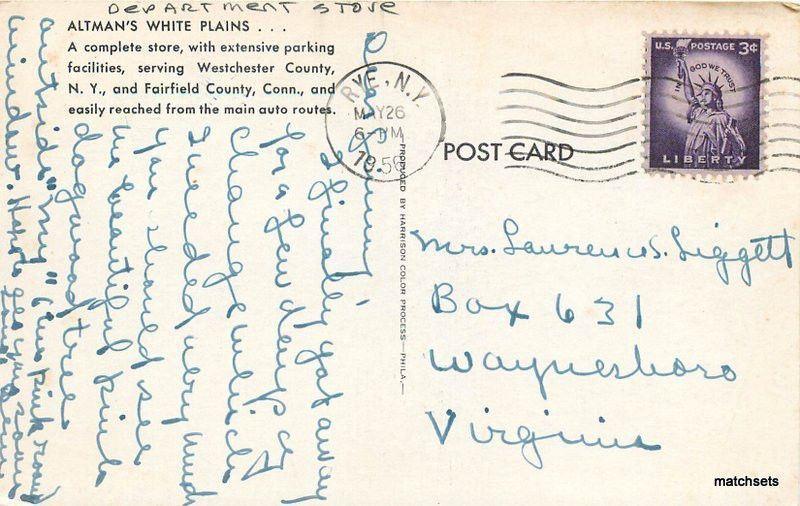 DEPARTMENT STORE
ALTMAN'S WHITE PLAINS . . .
A complete store, with extensive parking
facilities, serving Westchester County,
N. Y., and Fairfield County, Conn., and
easily reached from the main auto routes.
Dear
I finally got away
for a few days
change which
I needed very much
You should see
the beautiful pink
dogwood tree
outside "my" pink room
window. Hope to see you soon
RYE, N.Y.
MAY 26
6-PM
1956
U.S. POSTAGE 3¢
IN GOD WE TRUST
LIBERTY
POST CARD
PRODUCED BY HARRISON COLOR PROCESS—PHILA.
Mrs. Lawrence S. Liggett
Box 631
Waynesboro
Virginia
matchsets